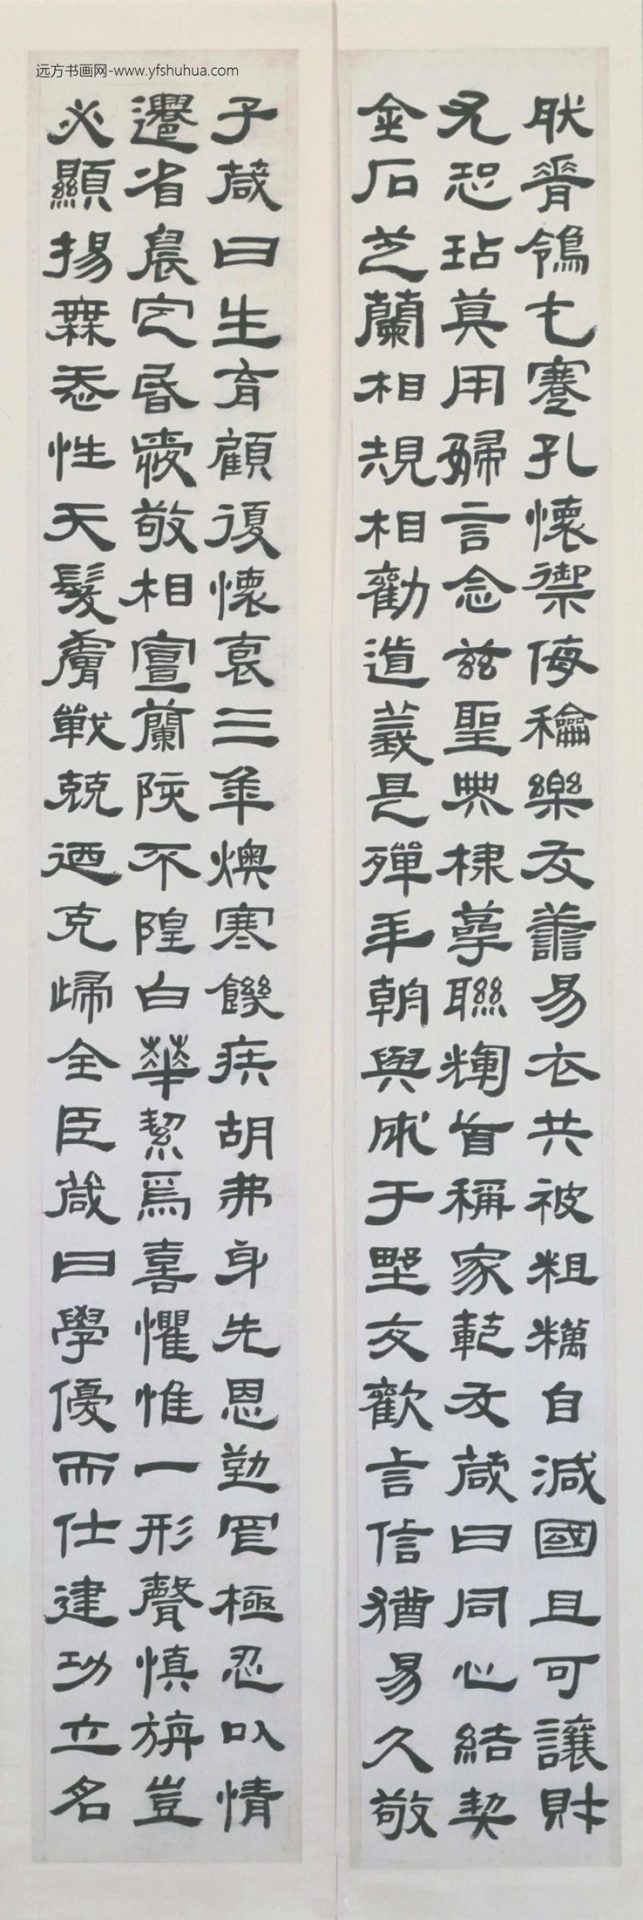 远方书画网-www.yfshuhua.com
脊鴒乇蹇孔懷禦侮龢樂友譱易衣共被粗糲自減國且可讓財
尤恐玷莫用婦言念茲聖典棣萼聯輝首稱家範友葴曰同心結契
金石芝蘭相規相勸道義是殫朝與成于野友歡言信猶易久敬
子葴曰生育顧復懷哀三年燠寒饑疾胡弗身先恩勤罔極忍以情
遷省晨定昏愛敬相宣蘭陔不隍白華絜爲喜懼惟一形聲慎旃豈
必顯揚無忝性天髮膚戰兢迺克歸全臣葴曰學優而仕建功立名